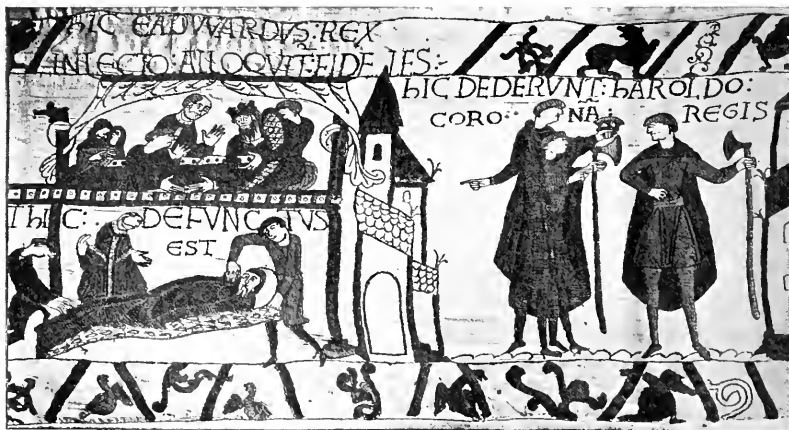 HIC EADVVARDVS: REX
IN LECTO: ALLOQVIT: FIDELES:
ET HIC: DEFVNCTVS
EST
hIC DEDERVNT: hAROLDO:
CORONA: REGIS